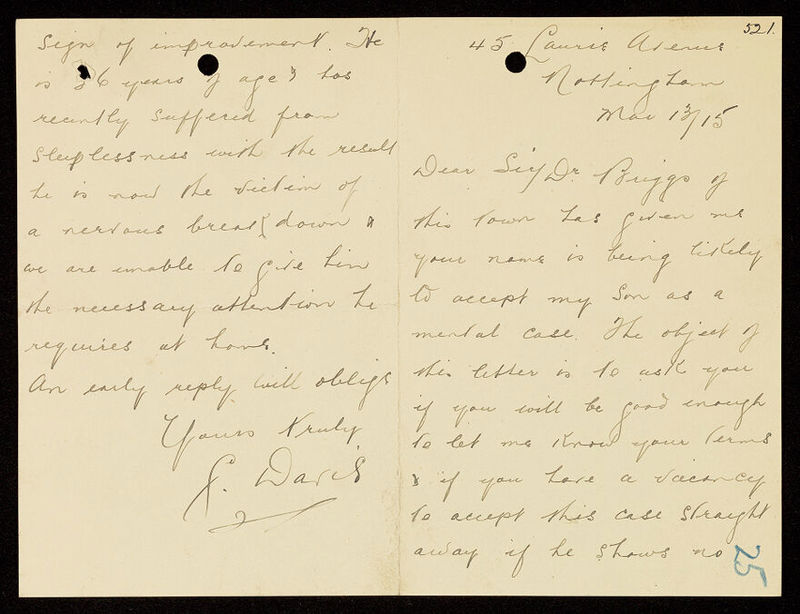 521.
45 Laurie Avenue
Nottingham
Mar 13/15
Dear Sir/ Dr Briggs of
this town has given me
your name is being likely
to accept my Son as a
mental case. The object of
this letter is to ask you
if you will be good enough
to let me know your terms
& if you have a vacancy
to accept this case straight
away if he shows no
25
sign of improvement. He
is 36 years of age & has
recently suffered from
sleeplessness with the result
he is now the victim of
a nervous break down &
we are unable to give him
the necessary attention he
requires at home.
An early reply will oblige
Yours truly
Davis